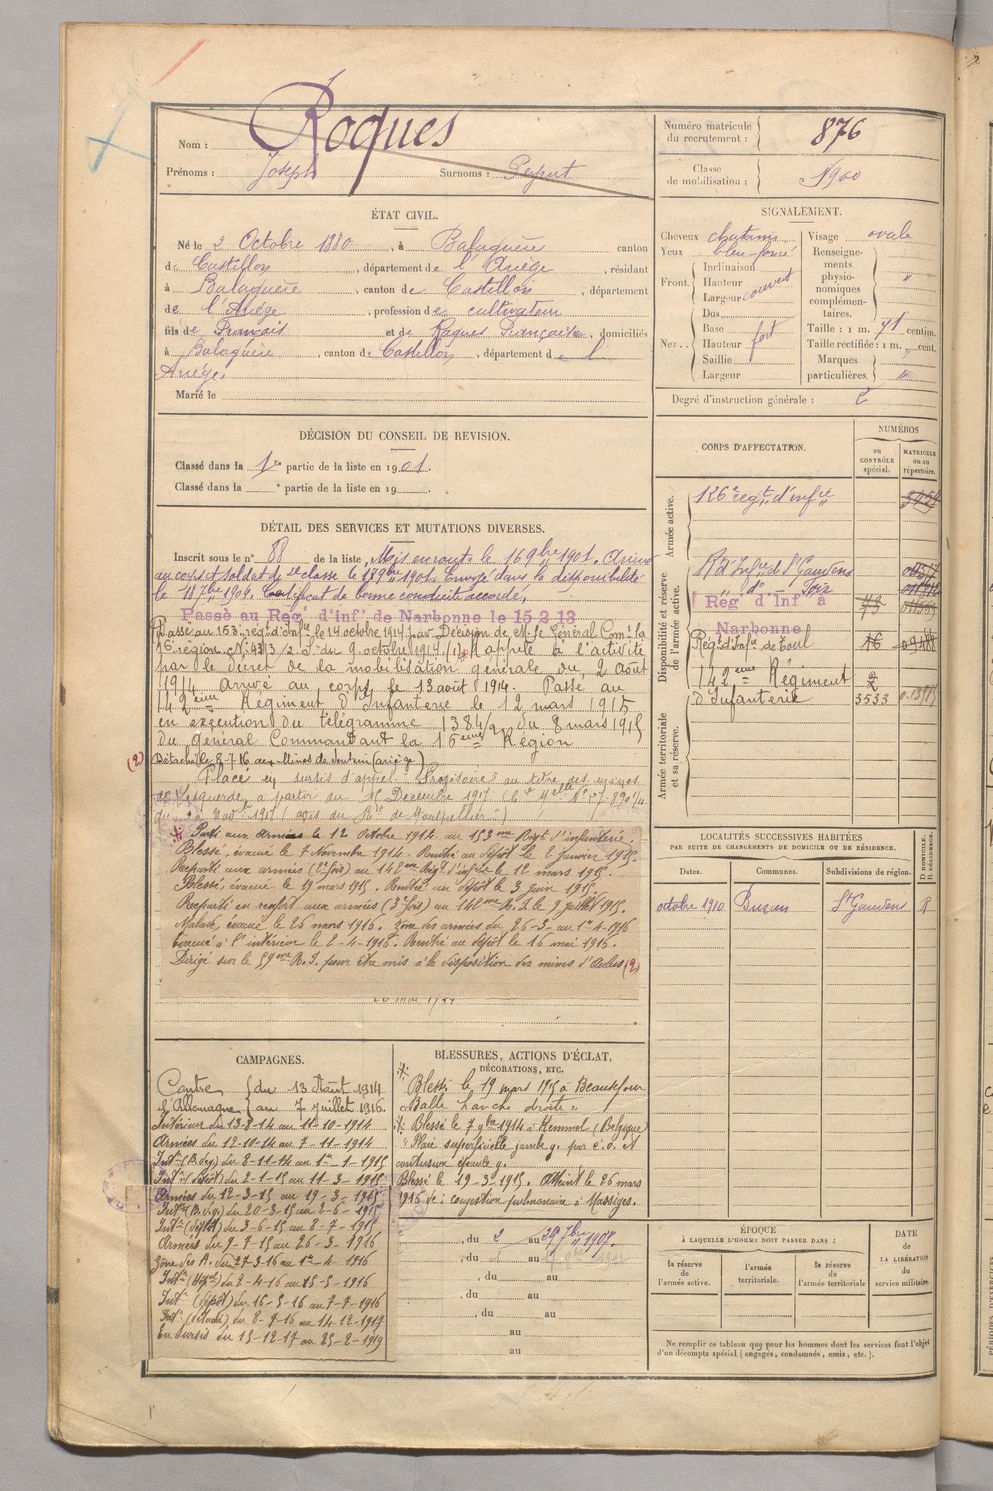 Nom : Roques
Prénoms : Joseph Surnoms :
Numéro matricule du recrutement : 876
Classe de mobilisation : 1900
ÉTAT CIVIL.
Né le 2 Octobre 1880, à Balaguère canton
de Castillon, département de l'Ariège, résidant
à Balaguère, canton de Castillon, département
de l'Ariège, profession de cultivateur
fils de François et de Roques Françoise, domiciliés
à Balaguère, canton de Castillon, département de l'
Ariège.
Marié le
SIGNALEMENT.
Cheveux chatains
Yeux bleu foncé
Front. Inclinaison
Hauteur
Largeur couvert
Nez.. Dos
Base
Hauteur fort
Saillie
Largeur
Visage ovale
Renseignements physionomiques complémentaires. "
Taille : 1 m. 71 centim.
Taille rectifiée : 1 m. " cent.
Marques particulières. "
Degré d'instruction générale :
DÉCISION DU CONSEIL DE REVISION.
Classé dans la 1re partie de la liste en 1901.
Classé dans la ° partie de la liste en 19
DÉTAIL DES SERVICES ET MUTATIONS DIVERSES.
Inscrit sous le n° 88 de la liste. Mis en route le 16 9bre 1901. Arrivé
au corps et soldat de 2e classe le 17 9bre 1901. Envoyé dans la disponibilité
le 7bre 1904. Certificat de bonne conduite accordé.
Passé au Reg' d'inf' de Narbonne le 15-2-13
Passé au 153e regt d'Infie le 14 octobre 1914 par Décision de M. le Général Comt la
16e région du 9 octobre 1914. (1) Rappelé à l'activité
par le décret de la mobilisation générale du 2 août
1914 arrivé au corps le 13 août 1914. Passé au
142ème Régiment d'Infanterie le 12 mars 1915
en exécution du télégramme 1384/2 du 8 mars 1915
du Général Commandant la 16ème Région
(2) Détaché le 8-7-16 aux Mines de Sentein (Ariège)
Placé en sursis d'appel au titre des usines
à partir du 15 Décembre 1917
* Parti aux armées le 12 Octobre 1914 au 153me Regt d'infanterie.
Blessé, évacué le 7 Novembre 1914. Rentré au dépôt le 2 Janvier 1915.
Reparti aux armées (2e fois) au 142me Regt d'infie le 12 mars 1915.
Blessé, évacué le 19 mars 1915. Rentré au dépôt le 3 juin 1915.
Reparti en renfort aux armées (3e fois) au 142me R.I. le 9 juillet 1915.
Malade, évacué le 26 mars 1916. Zône des armées du 26-3- au 1er 4-1916
Evacué à l'intérieur le 2-4-1916. Rentré au dépôt le 16 mai 1916.
Dirigé sur le 59me R.I. pour être mis à la disposition des mines d'Aulus (2)
CORPS D'AFFECTATION.
NUMÉROS
DU CONTRÔLE spécial.
MATRICULE ou au répertoire.
Armée active.
126e regt d'infie
Disponibilité et réserve de l'armée active.
Rt d'Infie de St Gaudens
" do Foix
Reg' d'Inf' à
Narbonne
Régt d'Infie de Toul 16
142ème Régiment
d'Infanterie 3533
Armée territoriale et sa réserve.
LOCALITÉS SUCCESSIVES HABITÉES
PAR SUITE DE CHANGEMENTS DE DOMICILE OU DE RÉSIDENCE.
Dates. Communes. Subdivisions de région. D DOMICILE. R RÉSIDENCE.
octobre 1910 Buzan St Gaudens R
CAMPAGNES.
Contre du 13 Août 1914
l'Allemagne au 7 juillet 1916.
Intérieur du 13-8-14 au 11-10-1914
Armées du 12-10-14 au 7-11-1914
Intr (B. dep) du 8-11-14 au 1er-1-1915
Intr (Dépôt) du 2-1-15 au 11-3-1915
Armées du 12-3-15 au 19-3-1915
du 20-3-15 au 2-6-1915
Intr (dépôt) du 3-6-15 au 8-7-1915
Armées du 9-7-15 au 26-3-1916
Zône des A. du 27-3-16 au 1er-4-1916
Intr du 2-4-16 au 15-5-1916
Intr (dépôt) du 16-5-16 au 7-7-1916
Intr du 8-7-16 au 14-12-1917
En sursis du 15-12-17 au 25-2-1919
BLESSURES, ACTIONS D'ÉCLAT,
DÉCORATIONS, ETC.
* Blessé le 19 mars 1915 à Beauséjour
"Balle hanche droite"
* Blessé le 7 9bre 1914 à Kemmel (Belgique)
"Plaie superficielle jambe g. par é. o. et
contusion épaule g.
Blessé le 19-3-1915. Atteint le 26 mars
1916 de : congestion pulmonaire à Massiges.
, du 2 au 29 7bre 1907.
, du au
, du au
, du au
au
au
ÉPOQUE
À LAQUELLE L'HOMME DOIT PASSER DANS :
la réserve de l'armée active.
l'armée territoriale.
la réserve de l'armée territoriale
DATE de LA LIBÉRATION du service militaire.
Ne remplir ce tableau que pour les hommes dont les services font l'objet
d'un décompte spécial (engagés, condamnés, omis, etc.).